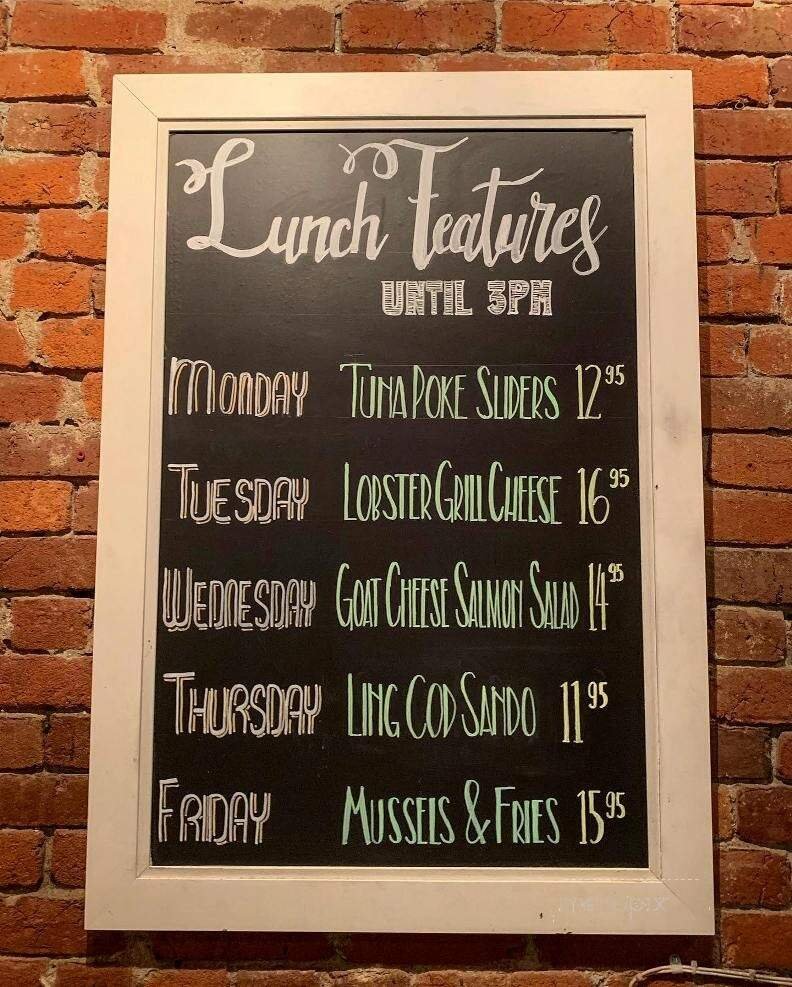 Lunch Features
UNTIL 3PM
MONDAY TUNA POKE SLIDERS 12 95
TUESDAY LOBSTER GRILL CHEESE 16 95
WEDNESDAY GOAT CHEESE SALMON SALAD 14 95
THURSDAY LING COD SANDO 11 95
FRIDAY MUSSELS & FRIES 15 95